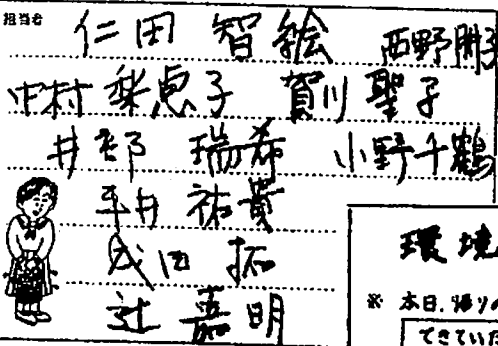 担当者
仁田 智絵 西野
中村 梨恵子 賀川 聖子
井部 瑞希 小野千鶴
平井 祐貴
成田 拓
辻 嘉明
環境
※ 本日、帰りの
できていた